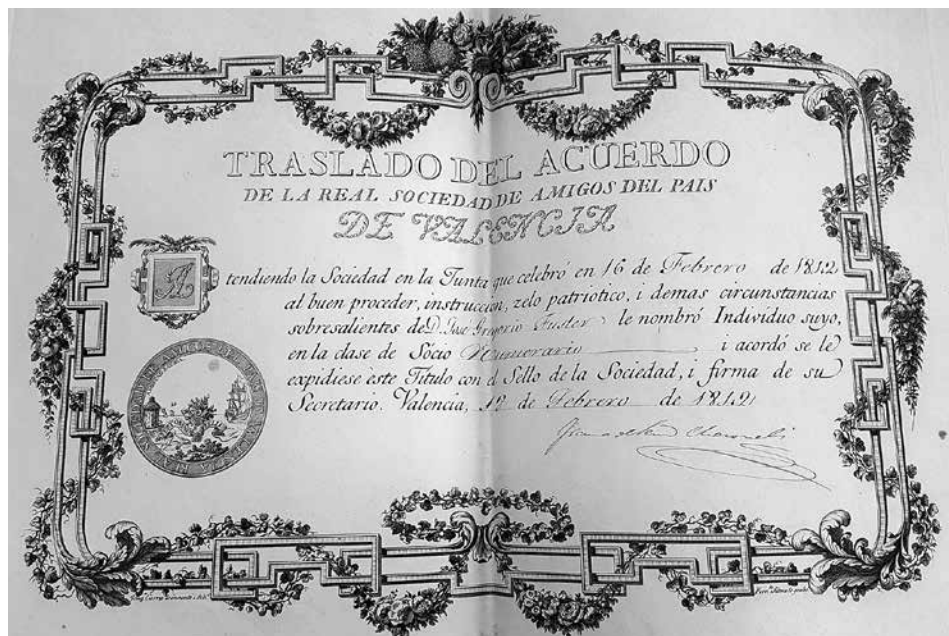 TRASLADO DEL ACUERDO
DE LA REAL SOCIEDAD DE AMIGOS DEL PAIS
DE VALENCIA
Atendiendo la Sociedad en la Junta que celebró en 16 de Febrero de 1812
al buen proceder, instruccion, zelo patriotico, i demas circunstancias
sobresalientes de D. Jose Gregorio Fuster le nombró Individuo suyo,
en la clase de Sócio Numerario i acordó se le
expidiese este Titulo con el Sello de la Sociedad, i firma de su
Secretario. Valencia, 19 de Febrero de 1812